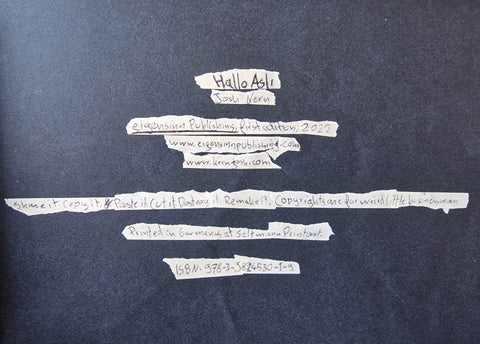 Hallo Asli
Josh Kern
eigensinn Publishing, first edition, 2022
www.eigensinnpublishing.com
www.kernjosh.com
Share it Copy it. Paste it Cut it Destroy it Remake it. Copyrights are for weird little businessmen
Printed in Germany at Seltmann Printart.
ISBN: 978-3-9824630-1-9